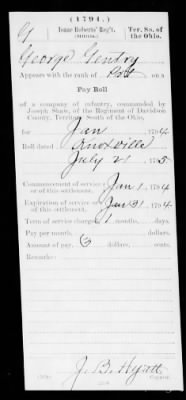 (1794.)
G | Isaac Roberts' Reg't. | Ter. So. of
(MILITIA.) | the Ohio.
George Gentry
Appears with the rank of Pvt on a
Pay Roll
of a company of infantry, commanded by
Joseph Shaw, of the Regiment of Davidson
County, Territory South of the Ohio,
for Jan , 1794
Roll dated Knoxville
July 21 , 1795
Commencement of service
or of this settlement, Jan 1 , 1794
Expiration of service
or of this settlement, Jan 31 , 1794
Term of service charged, 1 months, days.
Pay per month, dollars, cents.
Amount of pay, 3 dollars, cents.
Remarks:
J. B. Hyatt
Copyist.